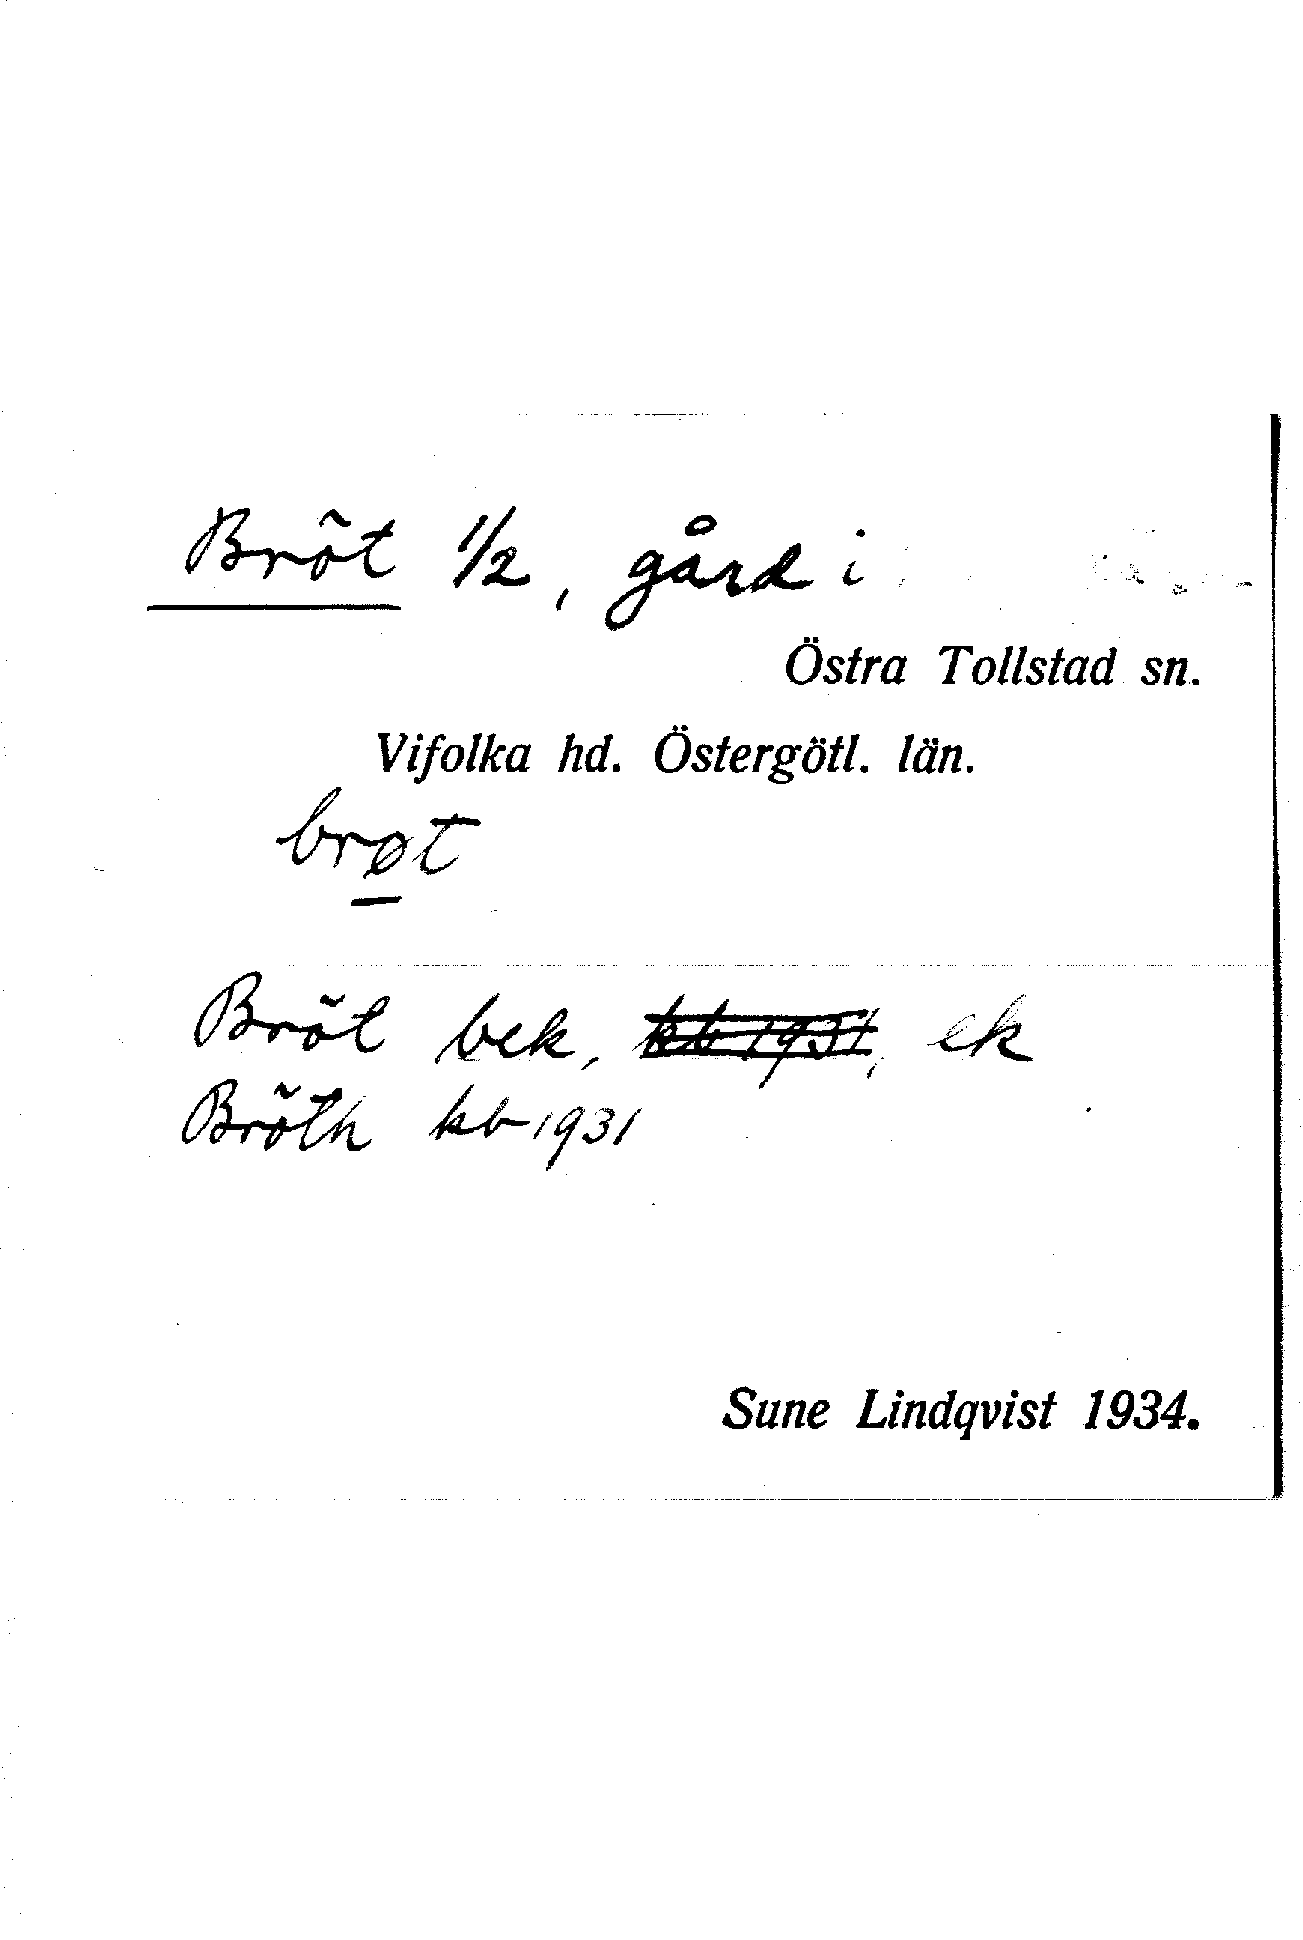 Bröt 1/2, gård i
Östra Tollstad sn.
Vifolka hd. Östergötl. län.
brøt
Bröt bek, kb 1931, ek
Bröth kb 1931
Sune Lindqvist 1934.